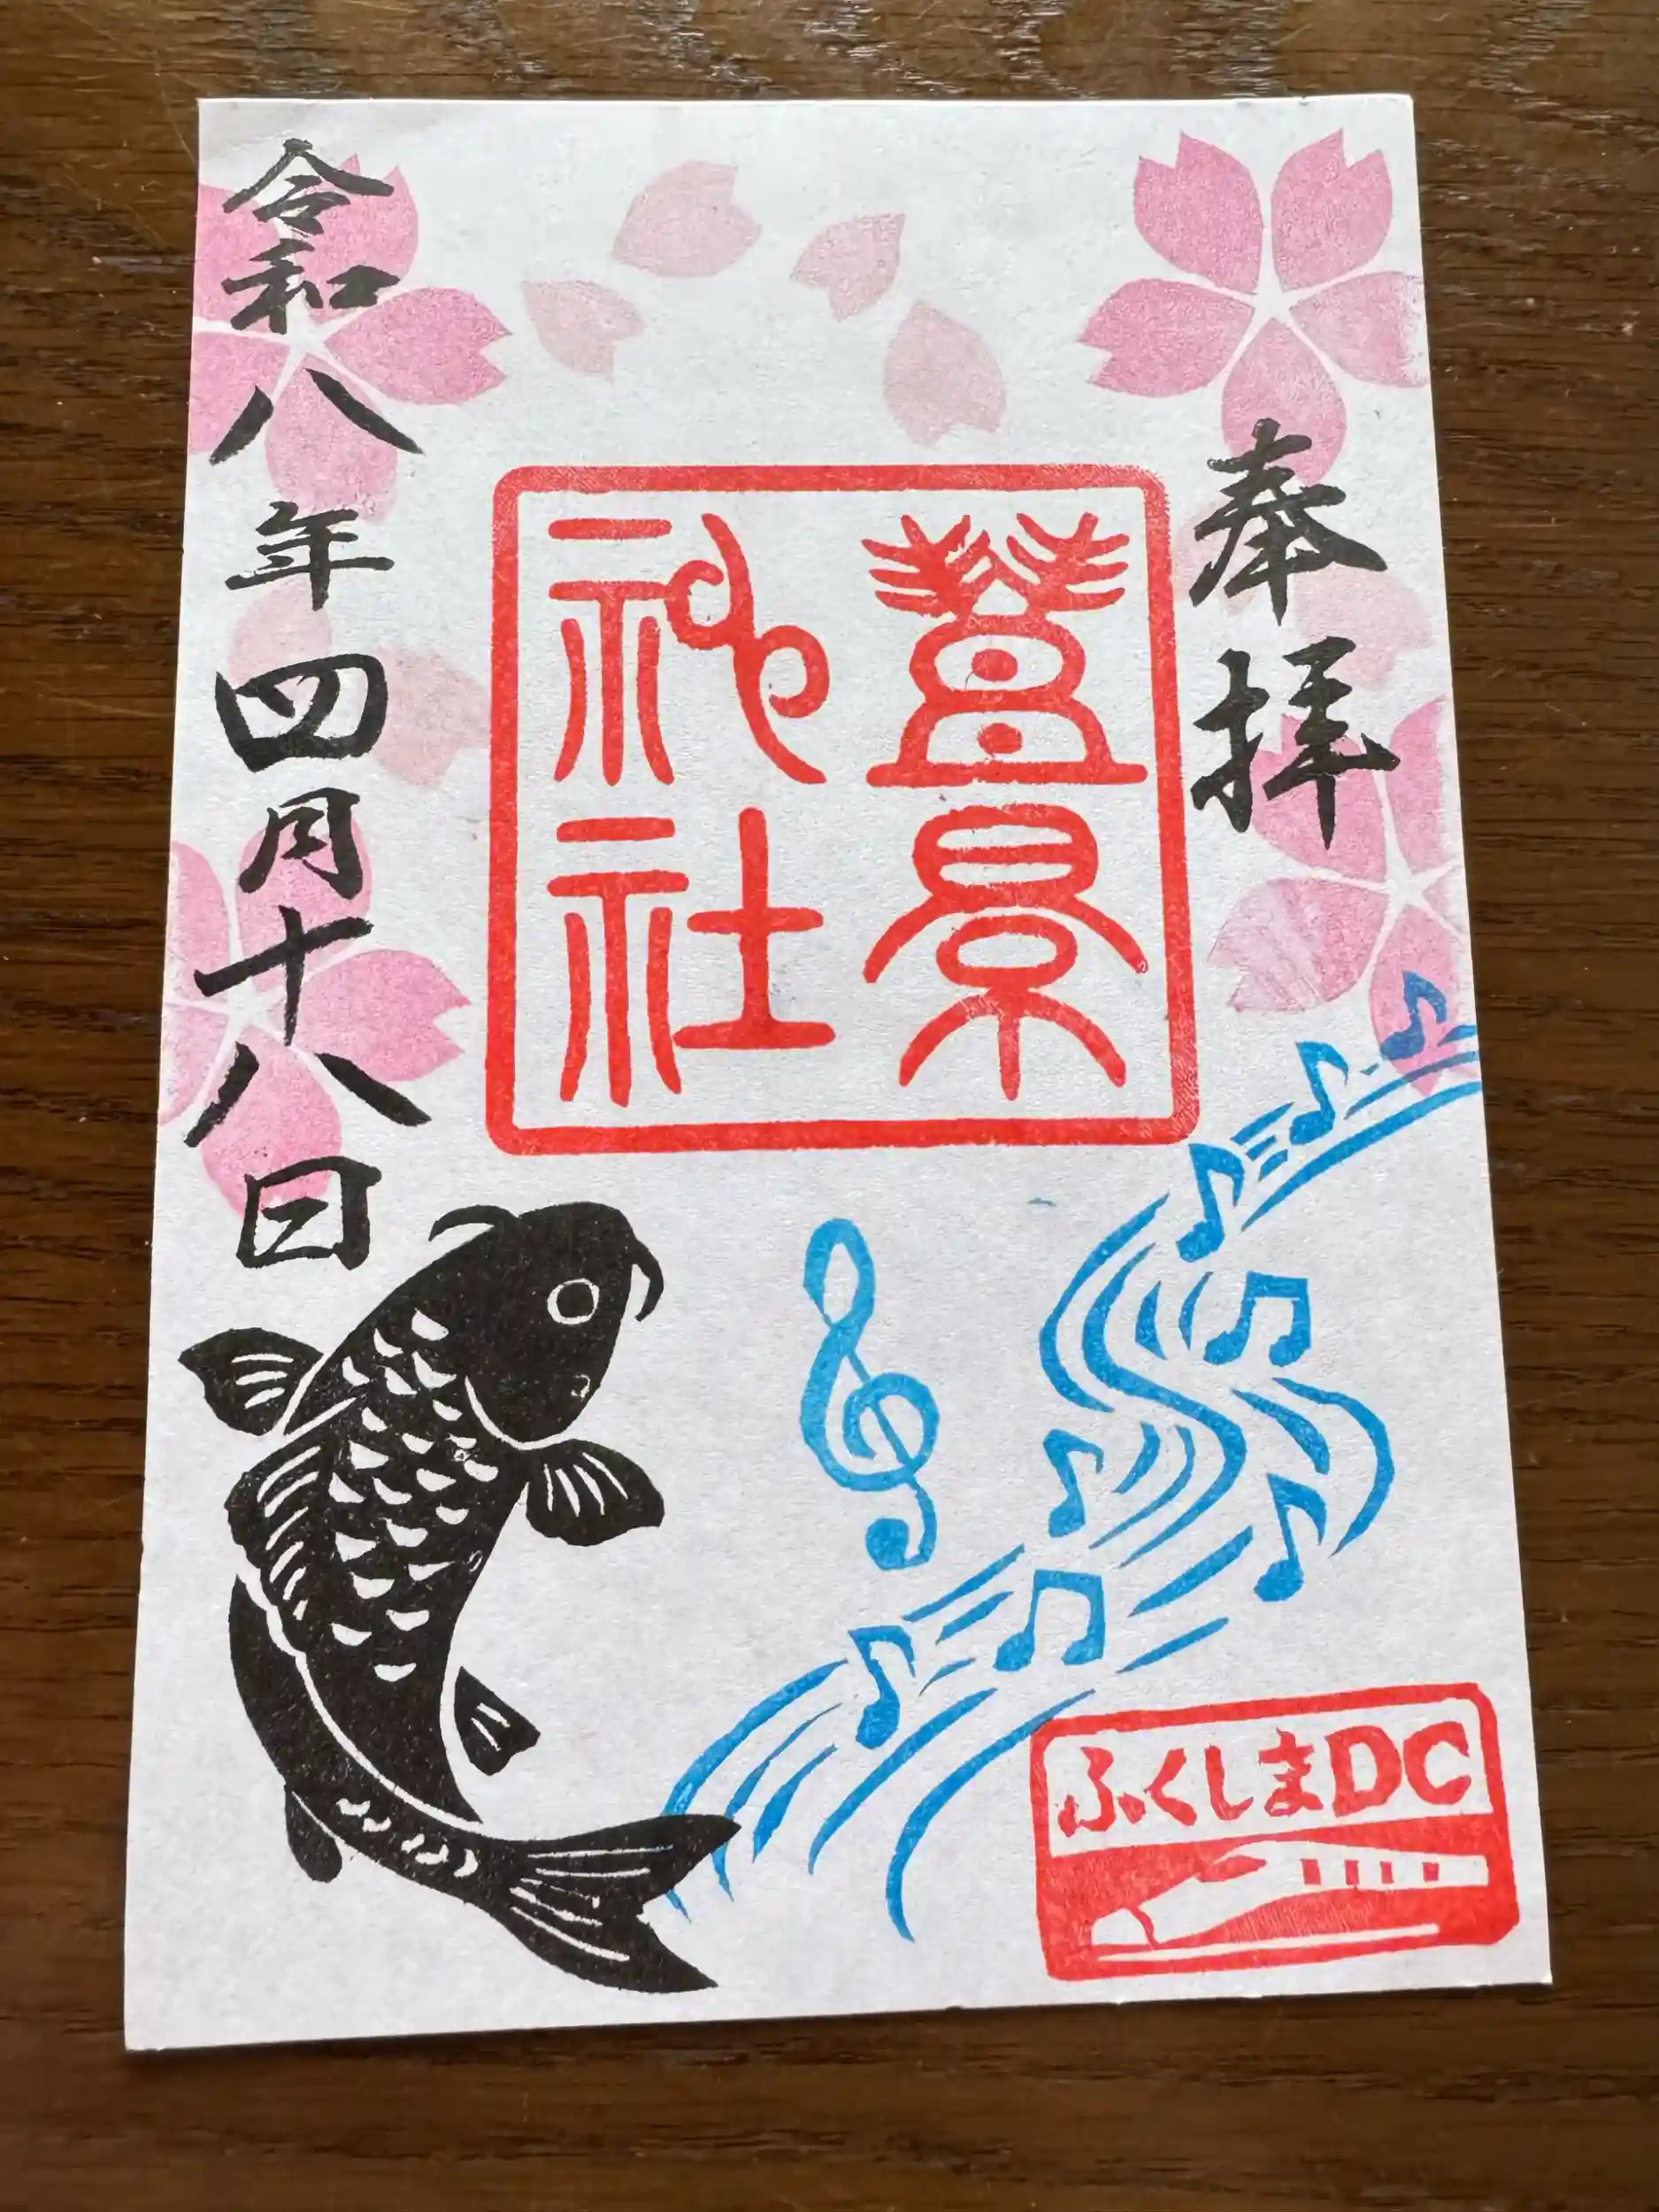 奉拝
豊景
神社
令和八年四月十八日
ふくしまDC